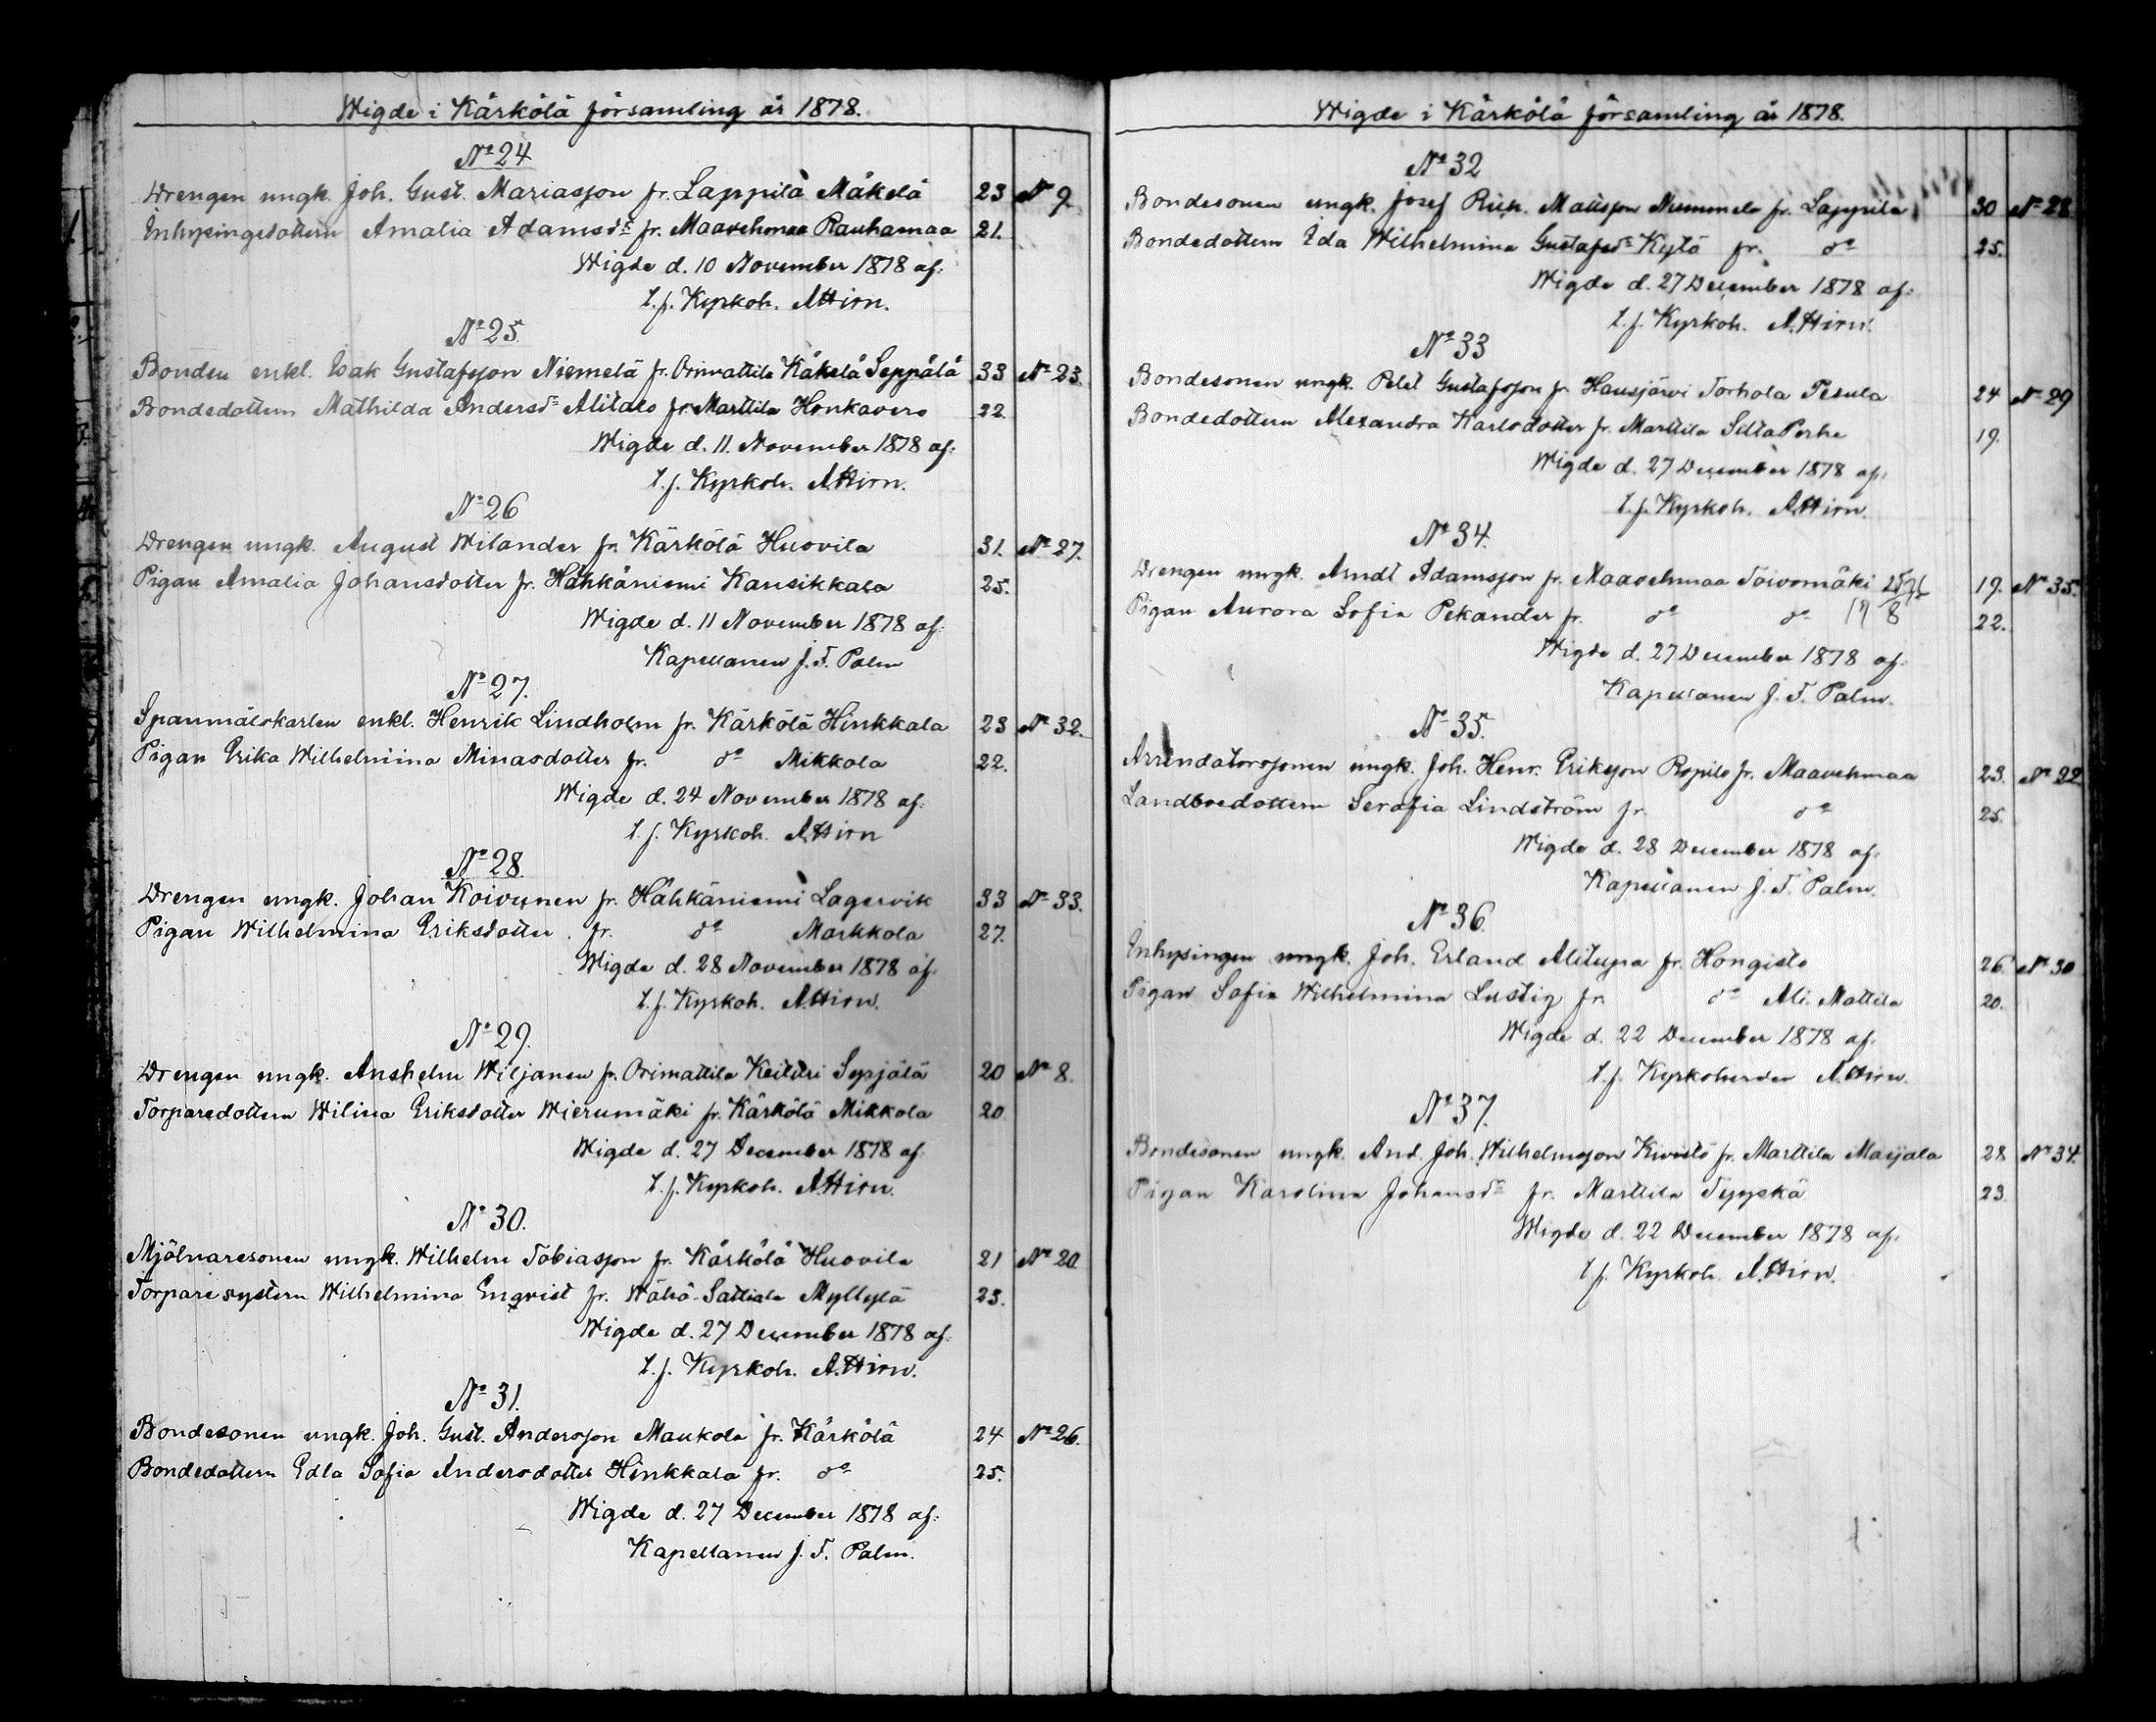 Wigde i Kärkölä församling år 1878.
No 24
Drengen ungk. Joh. Gust. Mariasson fr. Lappila Mäkelä 23 No 9.
Inhysingedottern Amalia Adamsdr fr. Maavehmaa Rauhamaa 21.
Wigde d. 10 November 1878 af:
t.f. Kyrkoh. A. Hirn.
No 25
Bonden enkl. Isak Gustafsson Niemelä fr. Orimattila Käkelä Seppälä 33 No 23.
Bondedottern Mathilda Andersdr Alitalo fr. Marttila Honkavero 22.
Wigde d. 11. November 1878 af:
t.f. Kyrkoh. A. Hirn.
No 26
Drengen ungk. August Wilander fr. Kärkölä Huovila 31. No 27.
Pigan Amalia Johansdotter fr. Hähkäniemi Kansikkala 25.
Wigde d. 11 November 1878 af:
Kapellanen J. T. Palm
No 27.
Spanmålskarlen enkl. Henrik Lindholm fr. Kärkölä Hinkkala 23 No 32.
Pigan Erika Wilhelmiina Minasdotter fr. do Mikkola 22.
Wigde d. 24 November 1878 af:
t.f. Kyrkoh. A. Hirn
No 28.
Drengen ungk. Johan Koivunen fr. Hähkäniemi Lagervik 33 No 33.
Pigan Wilhelmina Eriksdotter fr. do Markkola 27.
Wigde d. 28 November 1878 af:
t.f. Kyrkoh. A. Hirn.
No 29.
Drengen ungk. Anshelm Wiljanen fr. Orimattila Keituri Syrjälä 20 No 8.
Torparedottern Wilina Eriksdotter Wierumäki fr. Kärkölä Mikkola 20
Wigde d. 27 December 1878 af.
t.f. Kyrkoh. A. Hirn.
No 30.
Mjölnaresonen ungk. Wilhelm Tobiasson fr. Kärkölä Huovila 21 No 20.
Torparesystern Wilhelmina Enqvist fr. Wähä-Sattiala Myllylä 23.
Wigde d. 27 December 1878 af:
t.f. Kyrkoh. A. Hirn.
No 31.
Bondesonen ungk. Joh. Gust. Andersson Maukola fr. Kärkölä 24 No 26.
Bondedottern Edla Sofia Andersdotter Hinkkala fr. do 25.
Wigde d. 27 December 1878 af:
Kapellanen J. T. Palm.
Wigde i Kärkölä församling år 1878.
No 32
Bondesonen ungk. Josef Matisson Nummela fr. Lappila 30 No 28
Bondedottern Ida Wilhelmina Gustafsdr Kylä fr. do 25.
Wigde d. 27 December 1878 af:
t.f. Kyrkoh. A. Hirn.
No 33
Bondesonen ungk. Gustafsson fr. Hausjärvi Torhola Pesula 24 No 29
Bondedottern Alexandra Karlsdotter fr. Marttila Silta Perhe 19.
Wigde d. 27 December 1878 af:
t.f. Kyrkoh. A. Hirn.
No 34.
Drengen ungk. Arndt Adamsson fr. Maavehmaa Toivomäki 19. No 35.
Pigan Aurora Sofia Pekander fr. do do 22.
Wigde d. 27 December 1878 af:
Kapellanen J. T. Palm.
No 35.
Arrendatorssonen ungk. Joh. Henr. Eriksson Ropilo fr. Maavehmaa 23. No 22.
Landboedottern Serafia Lindström fr. do 25.
Wigde d. 28 December 1878 af:
Kapellanen J. T. Palm.
No 36.
Inhysingen ungk. Joh. Erland Alitupa fr. Hongisto 26. No 30
Pigan Sofia Wilhelmina Lustig fr. do Ali Mattila 20.
Wigde d. 22 December 1878 af:
t.f. Kyrkoherden A. Hirn.
No 37.
Bondesonen ungk. And. Joh. Wilhelmsson Kivistö fr. Marttila Maijala 28 No 34.
Pigan Karolina Johansdr fr. Marttila Tyyskä 23.
Wigde d. 22 December 1878 af:
t.f. Kyrkoh. A. Hirn.